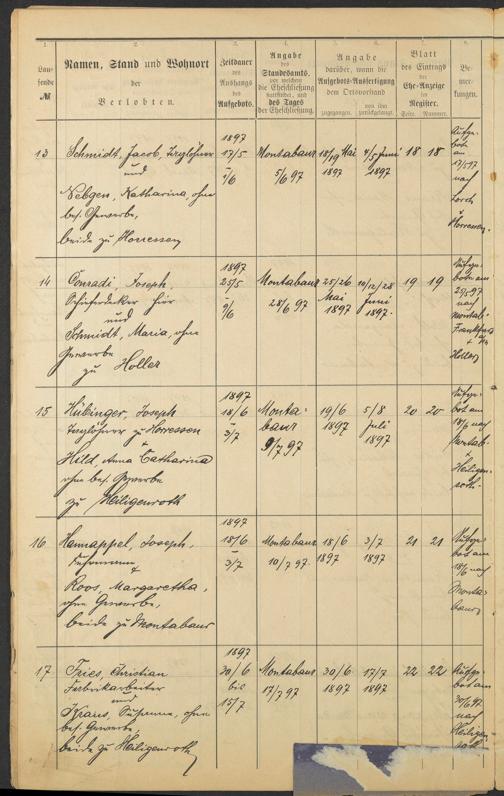 1. 2. 3. 4. 5. 6. 7. 8.
Lau-
fende
№
Namen, Stand und Wohnort
der
Verlobten.
Zeitdauer
des
Aushangs
des
Aufgebots.
Angabe
des
Standesamts,
vor welchem
die Eheschließung
stattfindet, und
des Tages
der Eheschließung.
Angabe
darüber, wann die
Aufgebots-Ausfertigung
dem Ortsvorstand
zugegangen. von ihm
zurückgelangt.
Blatt
des Eintrags
der
Ehe-Anzeige
im
Register.
Seite. Nummer.
Be-
mer-
kungen.
13
Schmidt, Jacob, Taglöhner
und
Nebgen, Katharina, ohne
bes. Gewerbe,
beide zu Horressen
1897
17/5
-
1/6
Montabaur
5/6 97
18/19 Mai
1897
4/5 Juni
1897
18 18
Aufge-
bot
am
17/5 97
nach
Horressen.
14
Conradi, Joseph,
Schieferdecker hier
und
Schmidt, Maria, ohne
Gewerbe
zu Holler
1897
25/5
-
9/6
Montabaur
28/6 97
25/26
Mai
1897
10/12/28
Juni
1897.
19 19
Aufge-
bot am
nach
Montab.
Frankfurt
Holler
15
Hübinger, Joseph
Taglöhner zu Horressen
+
Hild, Anna Catharina
ohne bes. Gewerbe
zu Heiligenroth
1897
18/6
-
3/7
Monta-
baur
9/7 97
19/6
1897
5/8
Juli
1897
20 20
Aufge-
bot am
18/6 nach
Montab.
+
Heiligen-
roth.
16
Hannappel, Joseph,
Fuhrmann
+
Roos, Margaretha,
ohne Gewerbe,
beide zu Montabaur
1897
18/6
-
3/7
Montabaur
10/7 97.
18/6
1897
3/7
1897
21 21
Aufge-
bot am
18/6 nach
Monta-
baur
17
Fries, Christian
Fabrikarbeiter
und
Kraus, Susanna, ohne
bes. Gewerbe,
beide zu Heiligenroth
1897
30/6
bis
15/7
Montabaur
17/7 97
30/6
1897
17/7
1897
22 22
Aufge-
bot am
30/6 97
nach
Heiligen-
roth